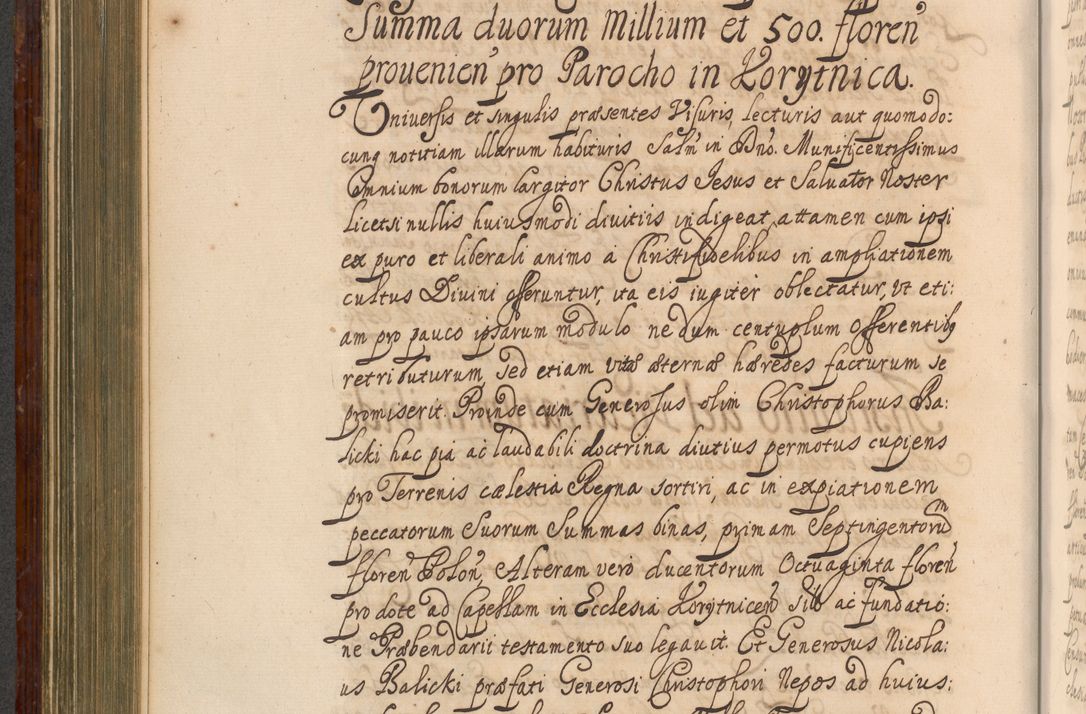 Summa duorum Millium et 500. floren̄
prouenien̄ pro Parocho in Korytnica.
Universis et singulis præsentes Visuris, lecturis aut quomodo:
cunq notitiam illarum habituris Salm̄ in Dno. Munificentissimus
Omnium bonorum largitor Christus Jesus et Saluator Noster
licetsi nullis huiusmodi divitiis indigeat, attamen cum ipsi
ex puro et liberali animo à Christifidelibus in ampliationem
cultus Divini offeruntur, ita eis iugiter oblectatur, ut eti:
am pro pauco ipsarum modulo nedum centuplum offerentibq
retributurum, sed etiam vitæ æternæ hæredes facturum se
promiserit. Proinde cum Generosus olim Christophorus Ba:
licki hac pia ac laudabili doctrina diutius permotus cupiens
pro Terrenis cælestia Regna sortiri, ac in expiationem
peccatorum suorum Summas binas, primam Septingentorum
floren̄ Polon̄, Alteram vero ducentorum Octuaginta floren̄
pro dote ad Capellam in Ecclesia Korytnicen̄ sitā ac fundatio:
ne Præbendarii testamento suo legauit. Et Generosus Nicola:
us Balicki præfati Generosi Christophori Nepos ad huius: